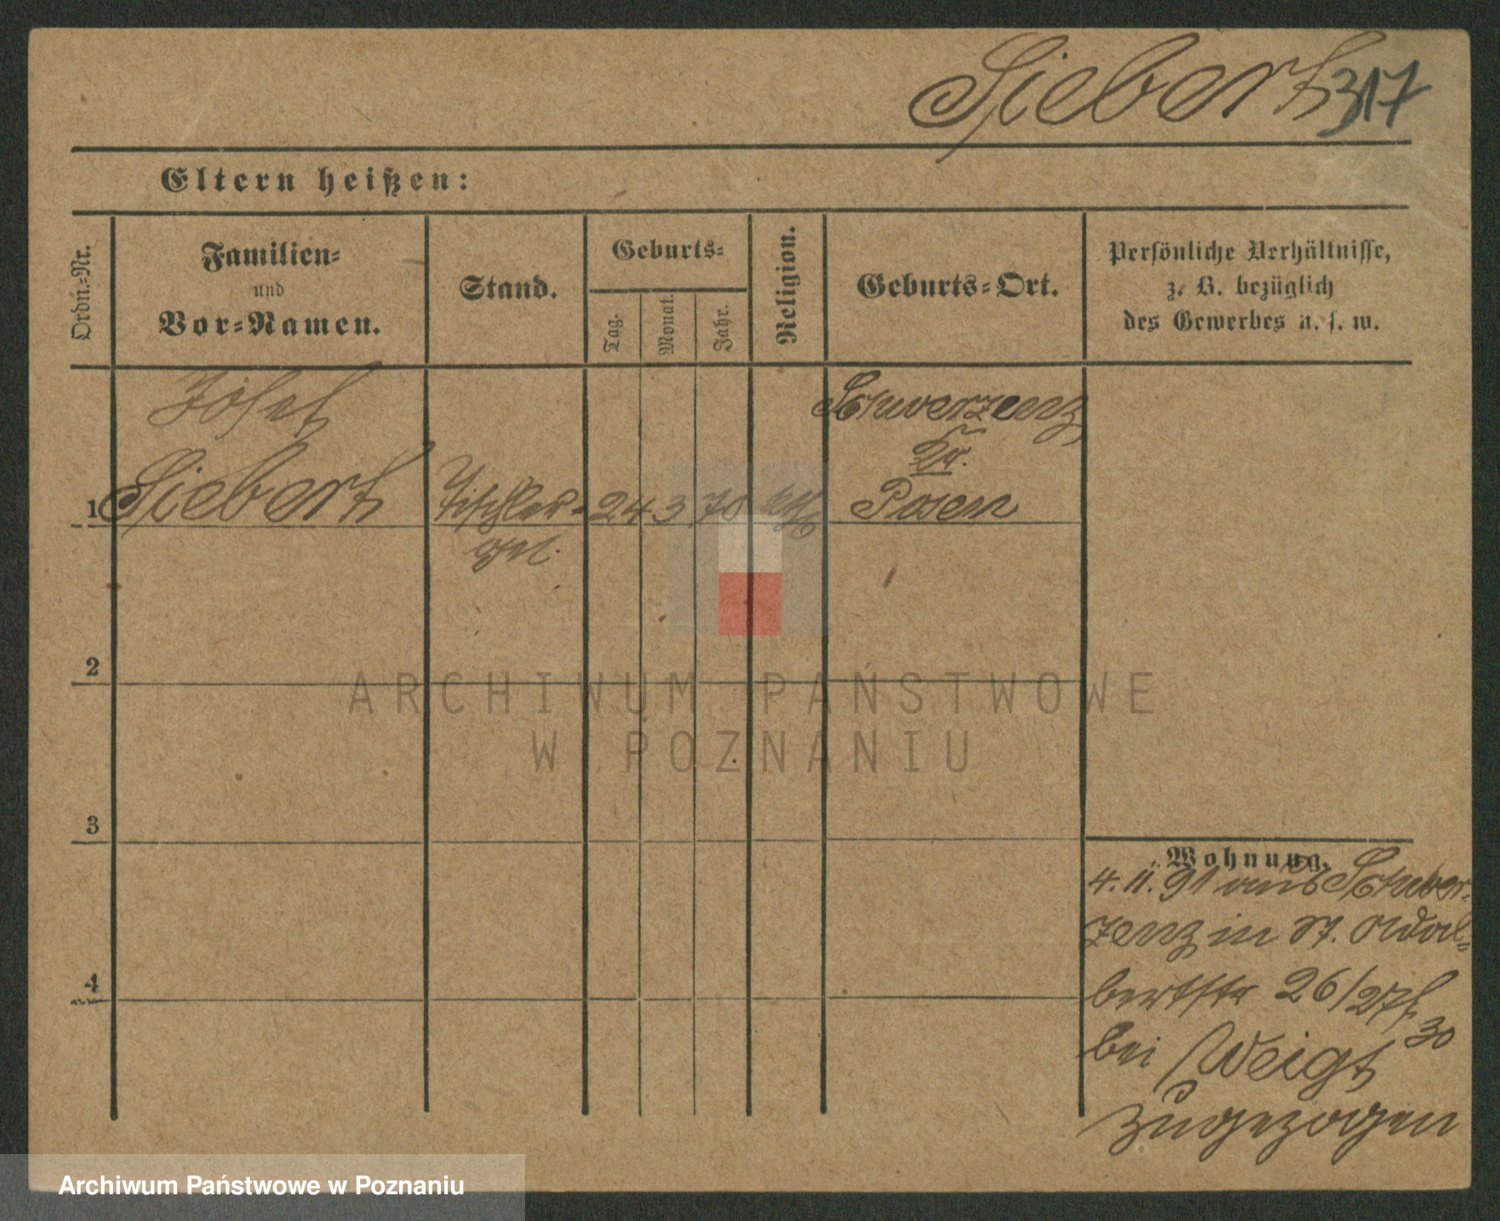 Siebert 317
Eltern heißen:
Ordn.-Nr.
Familien-
und
Vor-Namen.
Stand.
Geburts-
Tag.
Monat.
Jahr.
Religion.
Geburts-Ort.
Persönliche Verhältnisse,
z. B. bezüglich
des Gewerbes u. s. w.
Josef
Siebert
1
Tischler-
gesel.
24 3 70
kath
Schwerzenz
Kr.
Posen
2
3
4
Wohnung.
4. 11. 91 aus Schwer-
zenz in St. Adal-
bertstr 26/27
30
bei Weigt
zugezogen
ARCHIWUM PAŃSTWOWE
W POZNANIU
Archiwum Państwowe w Poznaniu